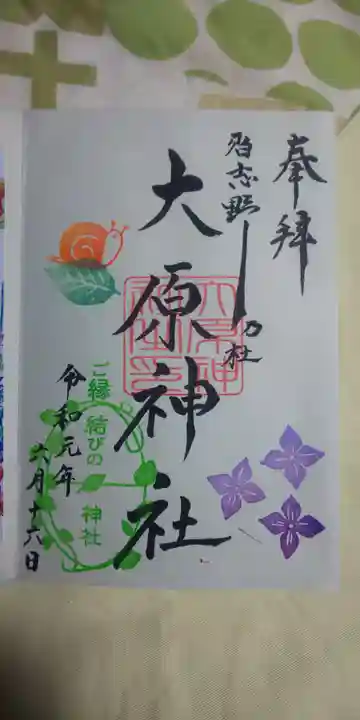 奉拝
習志野
大原神社
大原神社
ご縁結びの
神社
令和元年
六月十六日